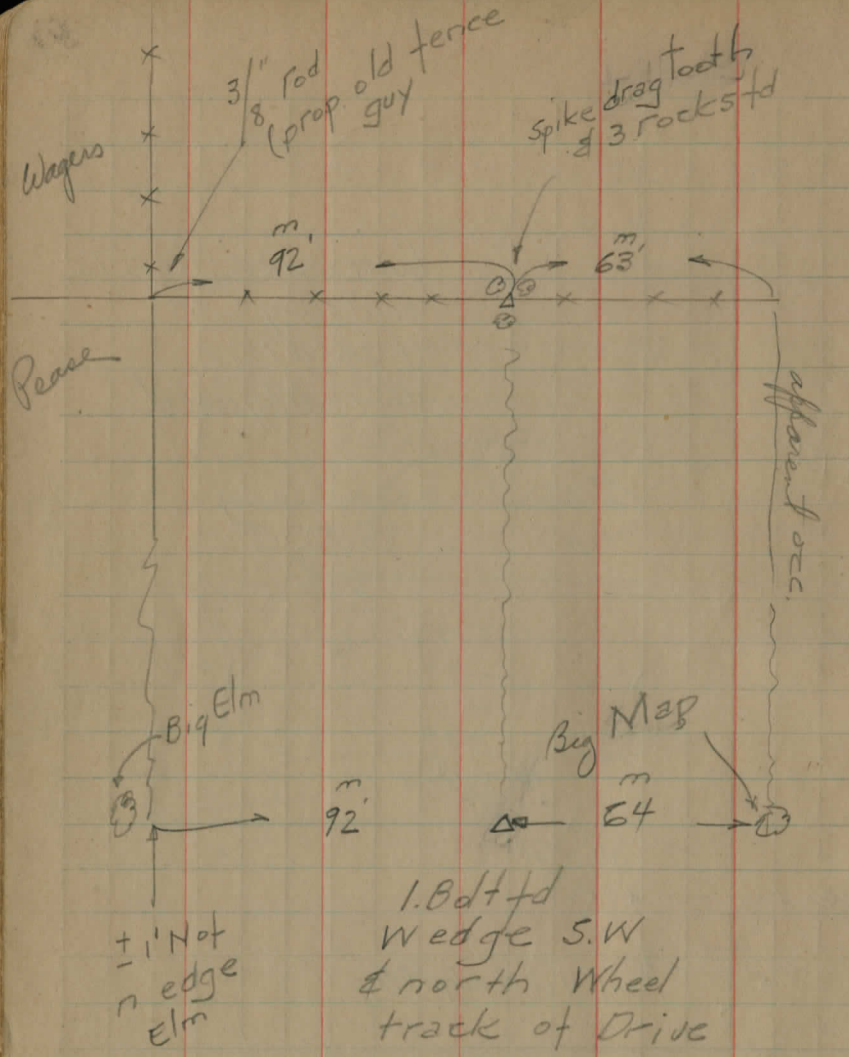 Wagers
3/8" rod
(prop. old fence
guy
spike drag tooth
& 3 rocks fd
m
92'
m
63'
Pease
apparent occ.
Big Elm
Big Map
m
92'
m
64
± 1' N of
n edge
Elm
1. Bolt fd
W edge S.W
& north Wheel
track of Drive